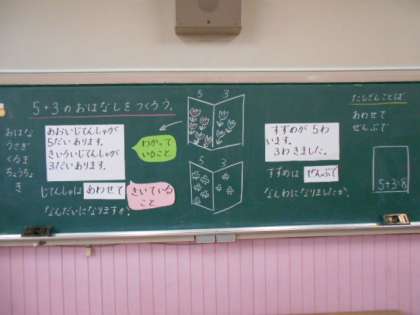 5+3のおはなしをつくろう。
おはな
うさぎ
くるま
ちょうちょ
き
あおいじてんしゃが
5だいあります。
きいろいじてんしゃが
3だいあります。
わかって
いること
じてんしゃは あわせて
きいている
こと
なんだいになりますか。
5 3
5 3
すずめが 5わ
います。
3わきました。
すずめは ぜんぶで
なんわになりましたか。
たしざんことば
あわせて
ぜんぶで
5+3=8